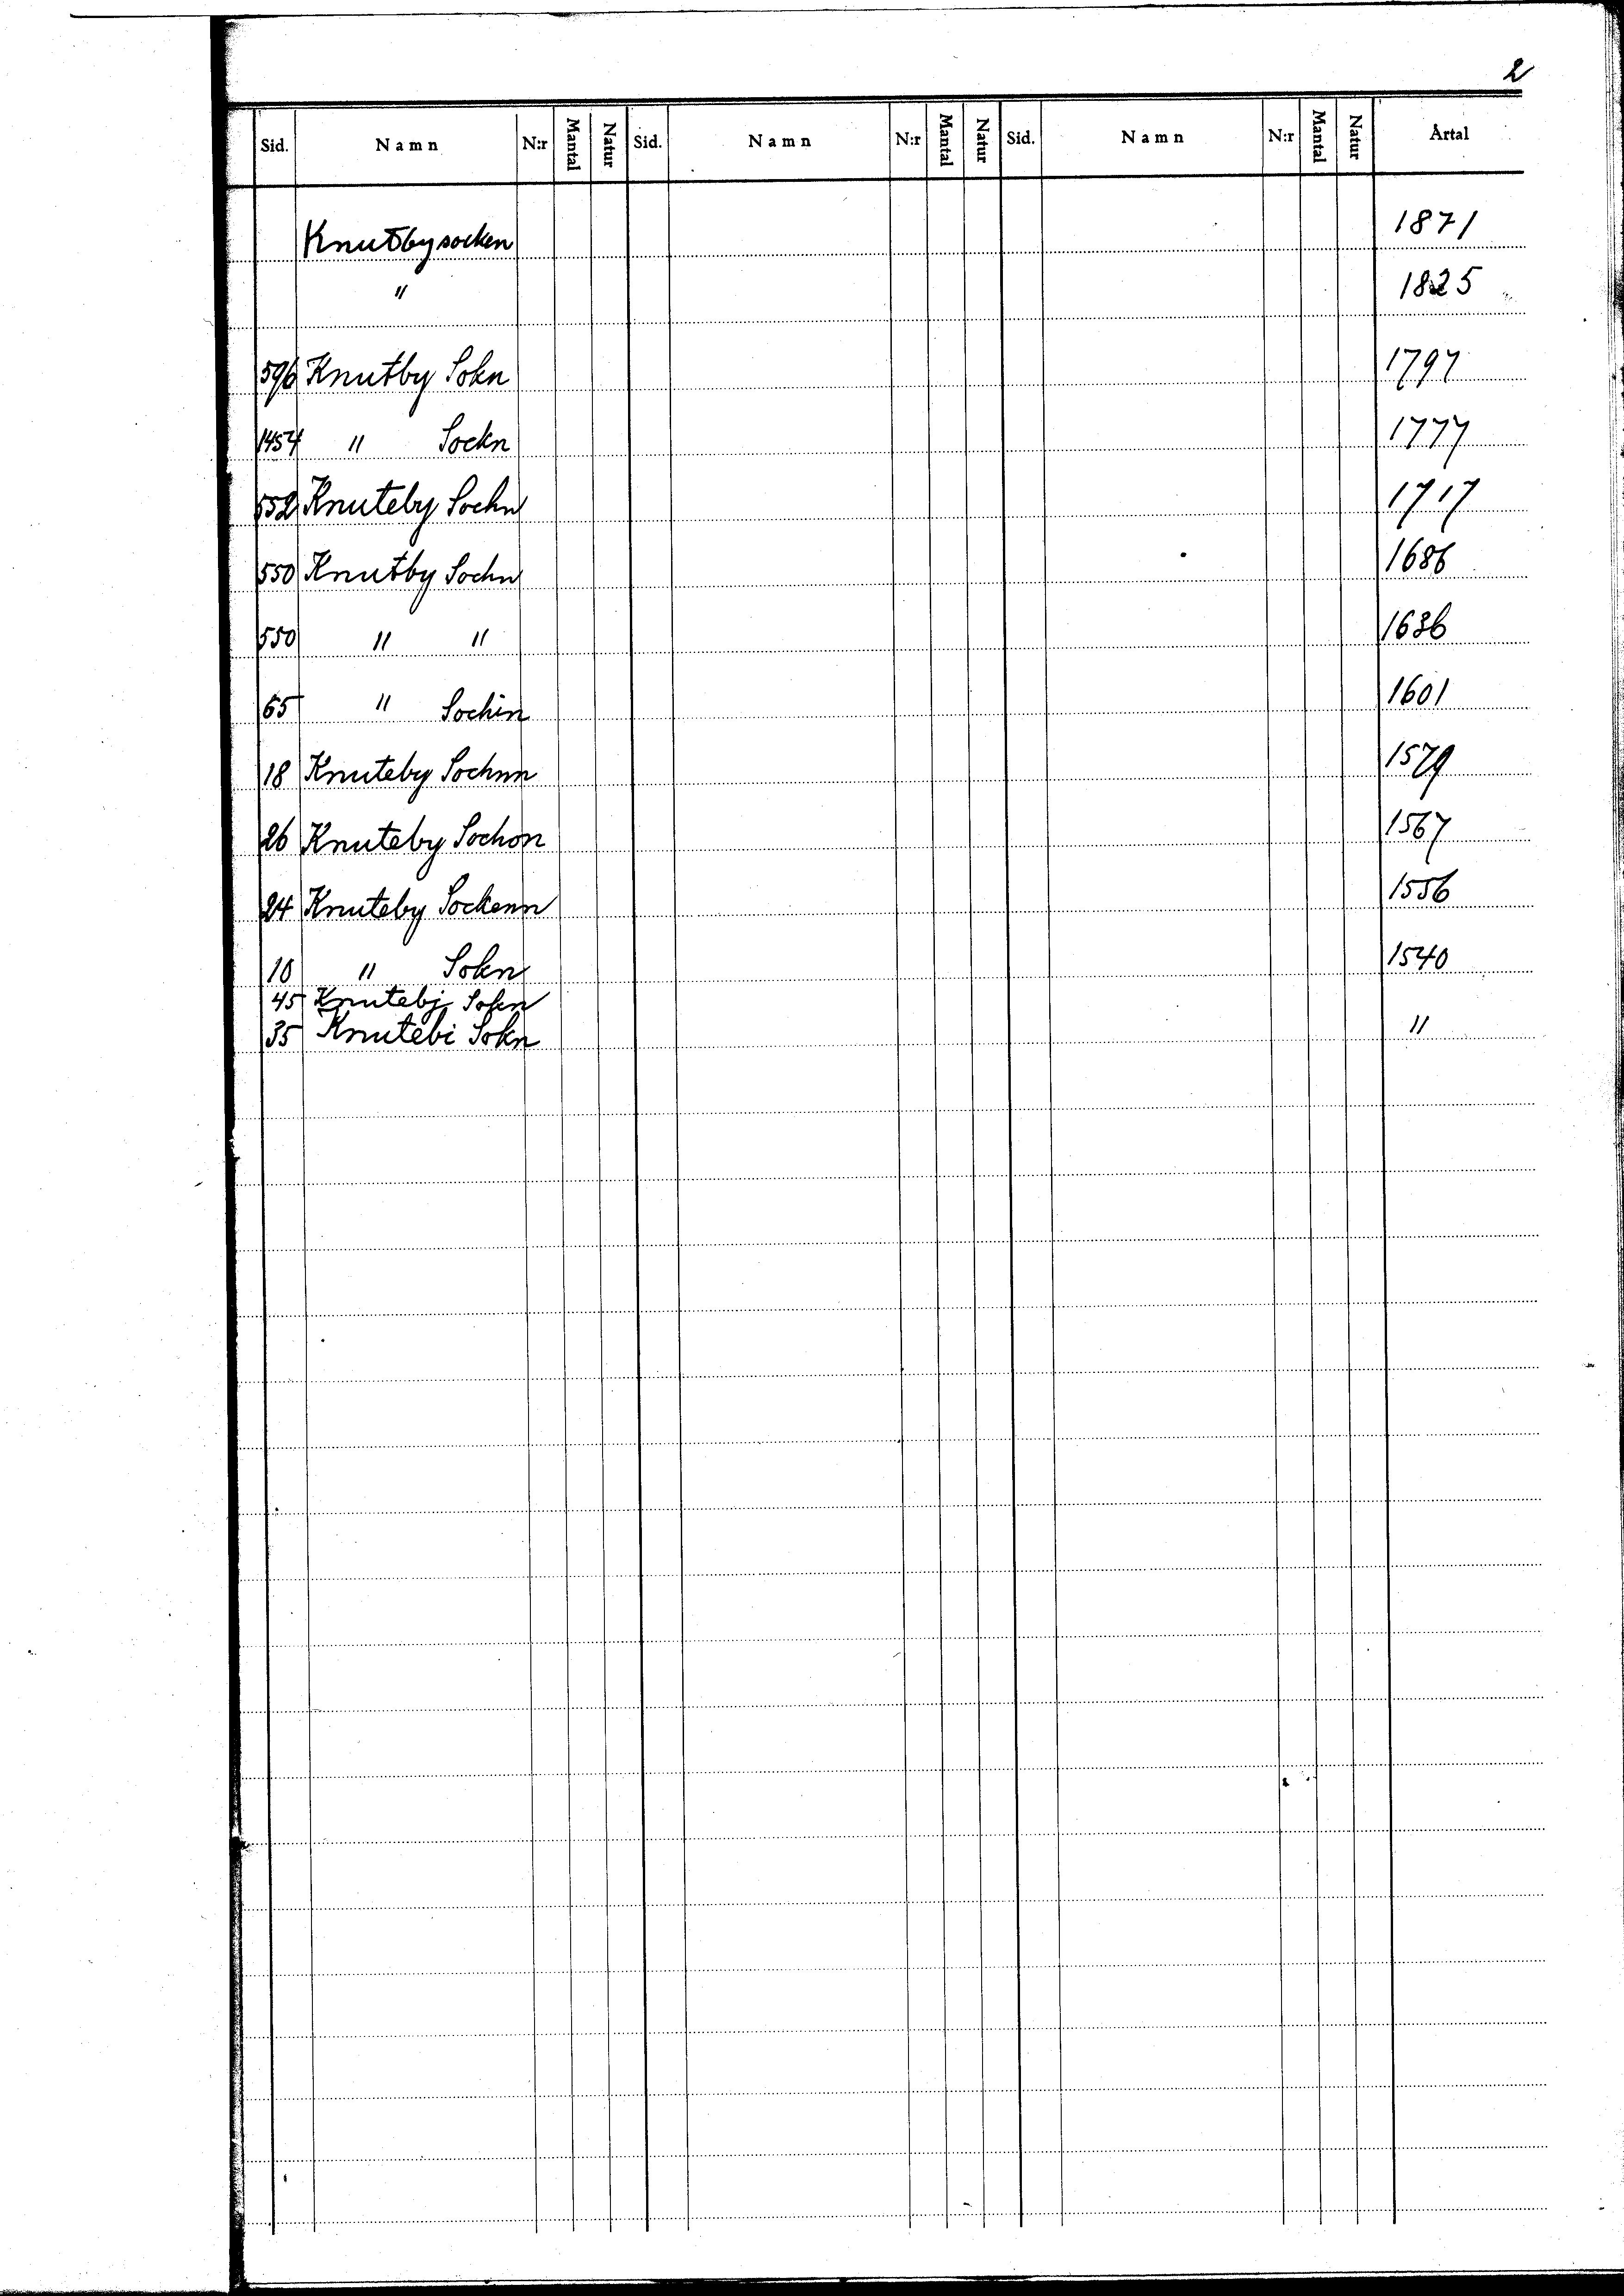 2
Sid. Namn N:r Mantal Natur Sid. Namn N:r Mantal Natur Sid. Namn N:r Mantal Natur Årtal
Knutby socken 1871
" 1825
596 Knutby Sokn 1797
1454 " Sockn 1777
552 Knuteby Sochn 1717
550 Knutby Sochn 1686
550 " " 1636
65 " Sochin 1601
18 Knuteby Sochnn 1579
26 Knuteby Sochon 1567
24 Knuteby Sockenn 1556
10 " Sokn 1540
45 Knutebj Sokn
35 Knutebi Sokn "